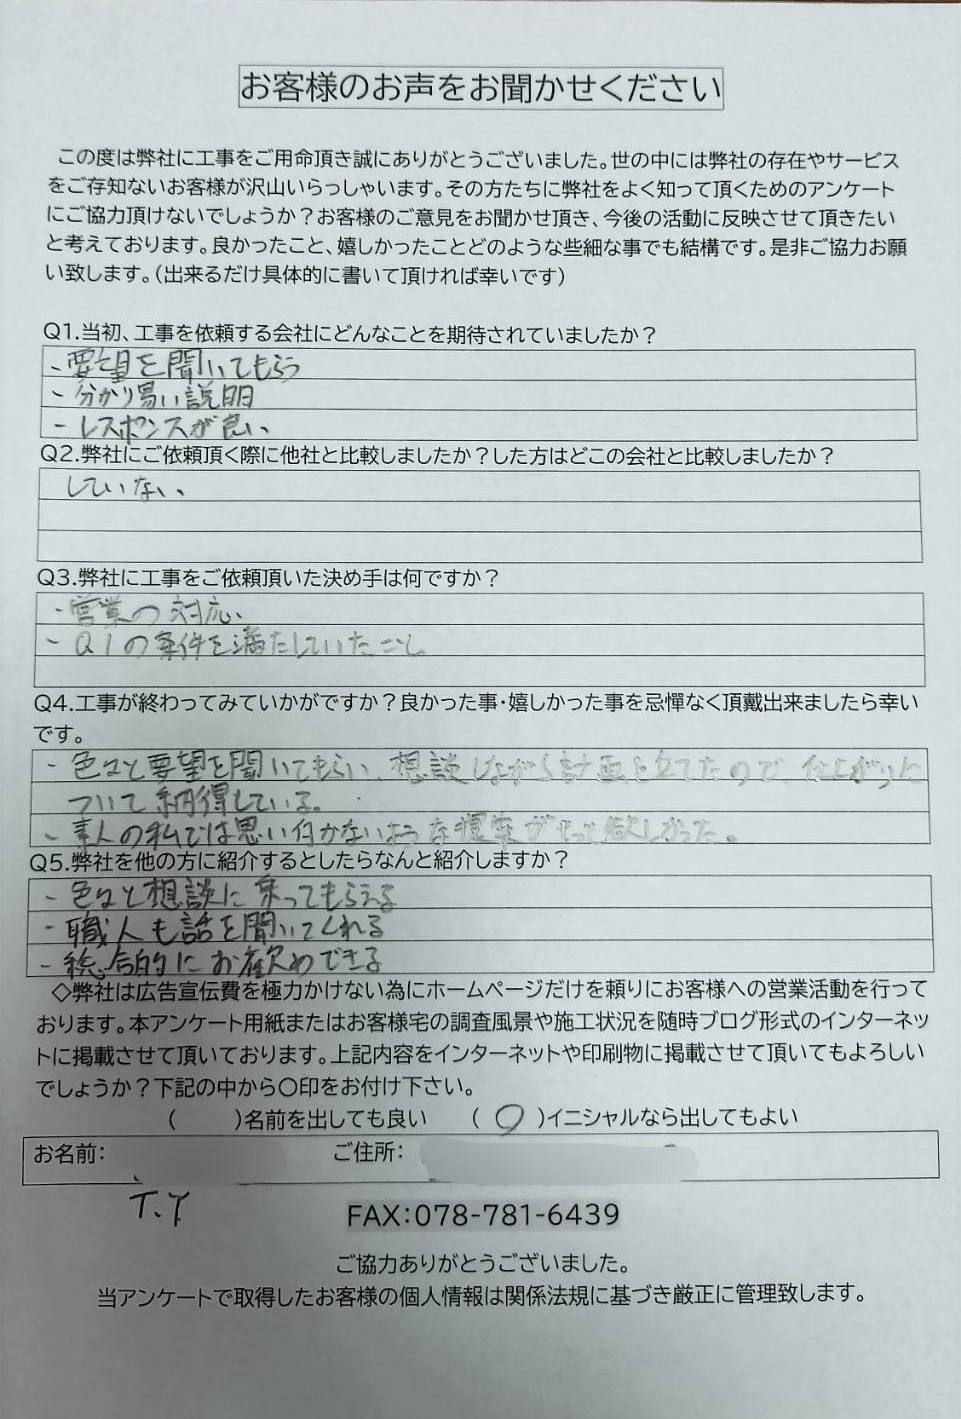 お客様のお声をお聞かせください
この度は弊社に工事をご用命頂き誠にありがとうございました。世の中には弊社の存在やサービス
をご存知ないお客様が沢山いらっしゃいます。その方たちに弊社をよく知って頂くためのアンケート
にご協力頂けないでしょうか？お客様のご意見をお聞かせ頂き、今後の活動に反映させて頂きたい
と考えております。良かったこと、嬉しかったことどのような些細な事でも結構です。是非ご協力お願
い致します。（出来るだけ具体的に書いて頂ければ幸いです）
Q1.当初、工事を依頼する会社にどんなことを期待されていましたか？
- 要望を聞いてもらう
- 分かり易い説明
- レスポンスが良い、
Q2.弊社にご依頼頂く際に他社と比較しましたか？した方はどこの会社と比較しましたか？
していない、
Q3.弊社に工事をご依頼頂いた決め手は何ですか？
- 営業の対応、
- Q1の条件を満たしていたこと
Q4.工事が終わってみていかがですか？良かった事・嬉しかった事を忌憚なく頂戴出来ましたら幸い
です。
- 色々と要望を聞いてもらい、想談しながら計画を立てたので、仕上がりに
ついて納得している。
- 素人の私では思い付かないような提案がもって欲しかった。
Q5.弊社を他の方に紹介するとしたらなんと紹介しますか？
- 色々と想談に乗ってもらえる
- 職人も話を聞いてくれる
- 総合的にお薦めできる
◇弊社は広告宣伝費を極力かけない為にホームページだけを頼りにお客様への営業活動を行って
おります。本アンケート用紙またはお客様宅の調査風景や施工状況を随時ブログ形式のインターネッ
トに掲載させて頂いております。上記内容をインターネットや印刷物に掲載させて頂いてもよろしい
でしょうか？下記の中から〇印をお付け下さい。
（　　）名前を出しても良い　（ 〇 ）イニシャルなら出してもよい
お名前：　ご住所：
T.Y
FAX：078-781-6439
ご協力ありがとうございました。
当アンケートで取得したお客様の個人情報は関係法規に基づき厳正に管理致します。